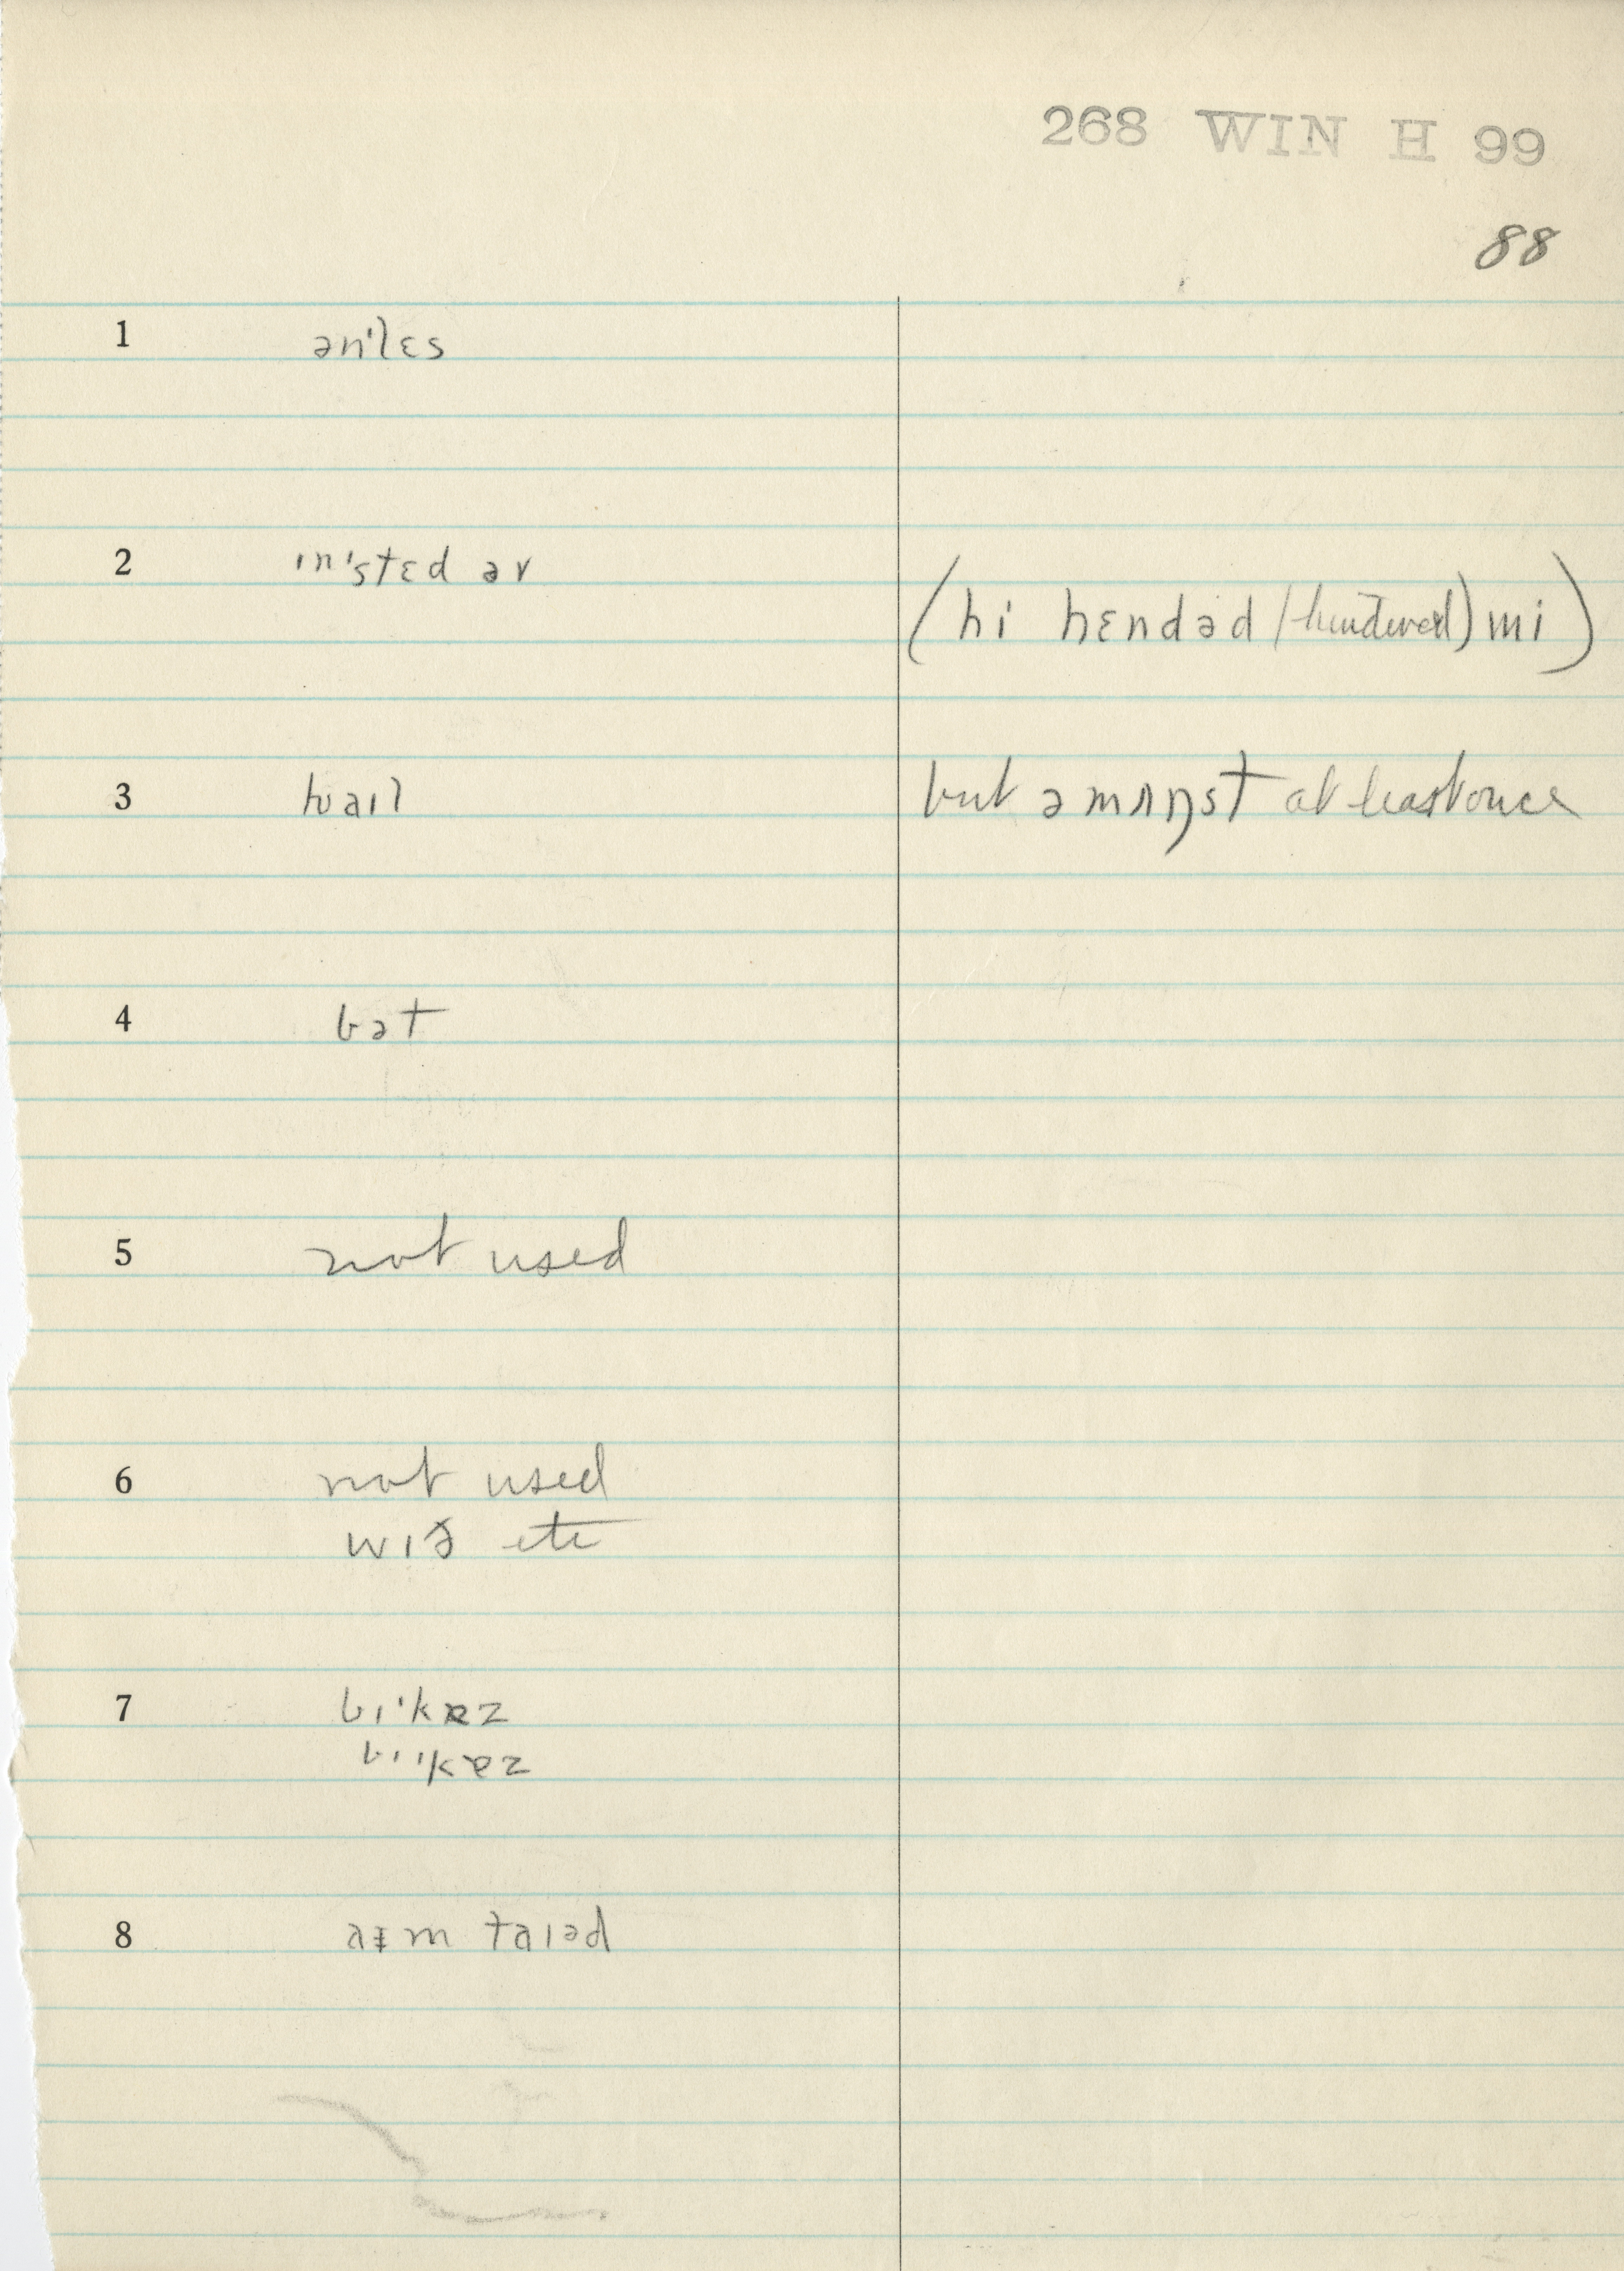 268 WIN H 99
88
1 ən'lɛs
2 ɪn'stɛd əv
(hi hɛndəd / hindered) mi)
3 ʍaɪl
but əmʌŋst at least once
4 bət
5 not used
6 not used
wɪð etc
7 bɪ'kɐz
bɪ'kɐz
8 aɪm taɪəd